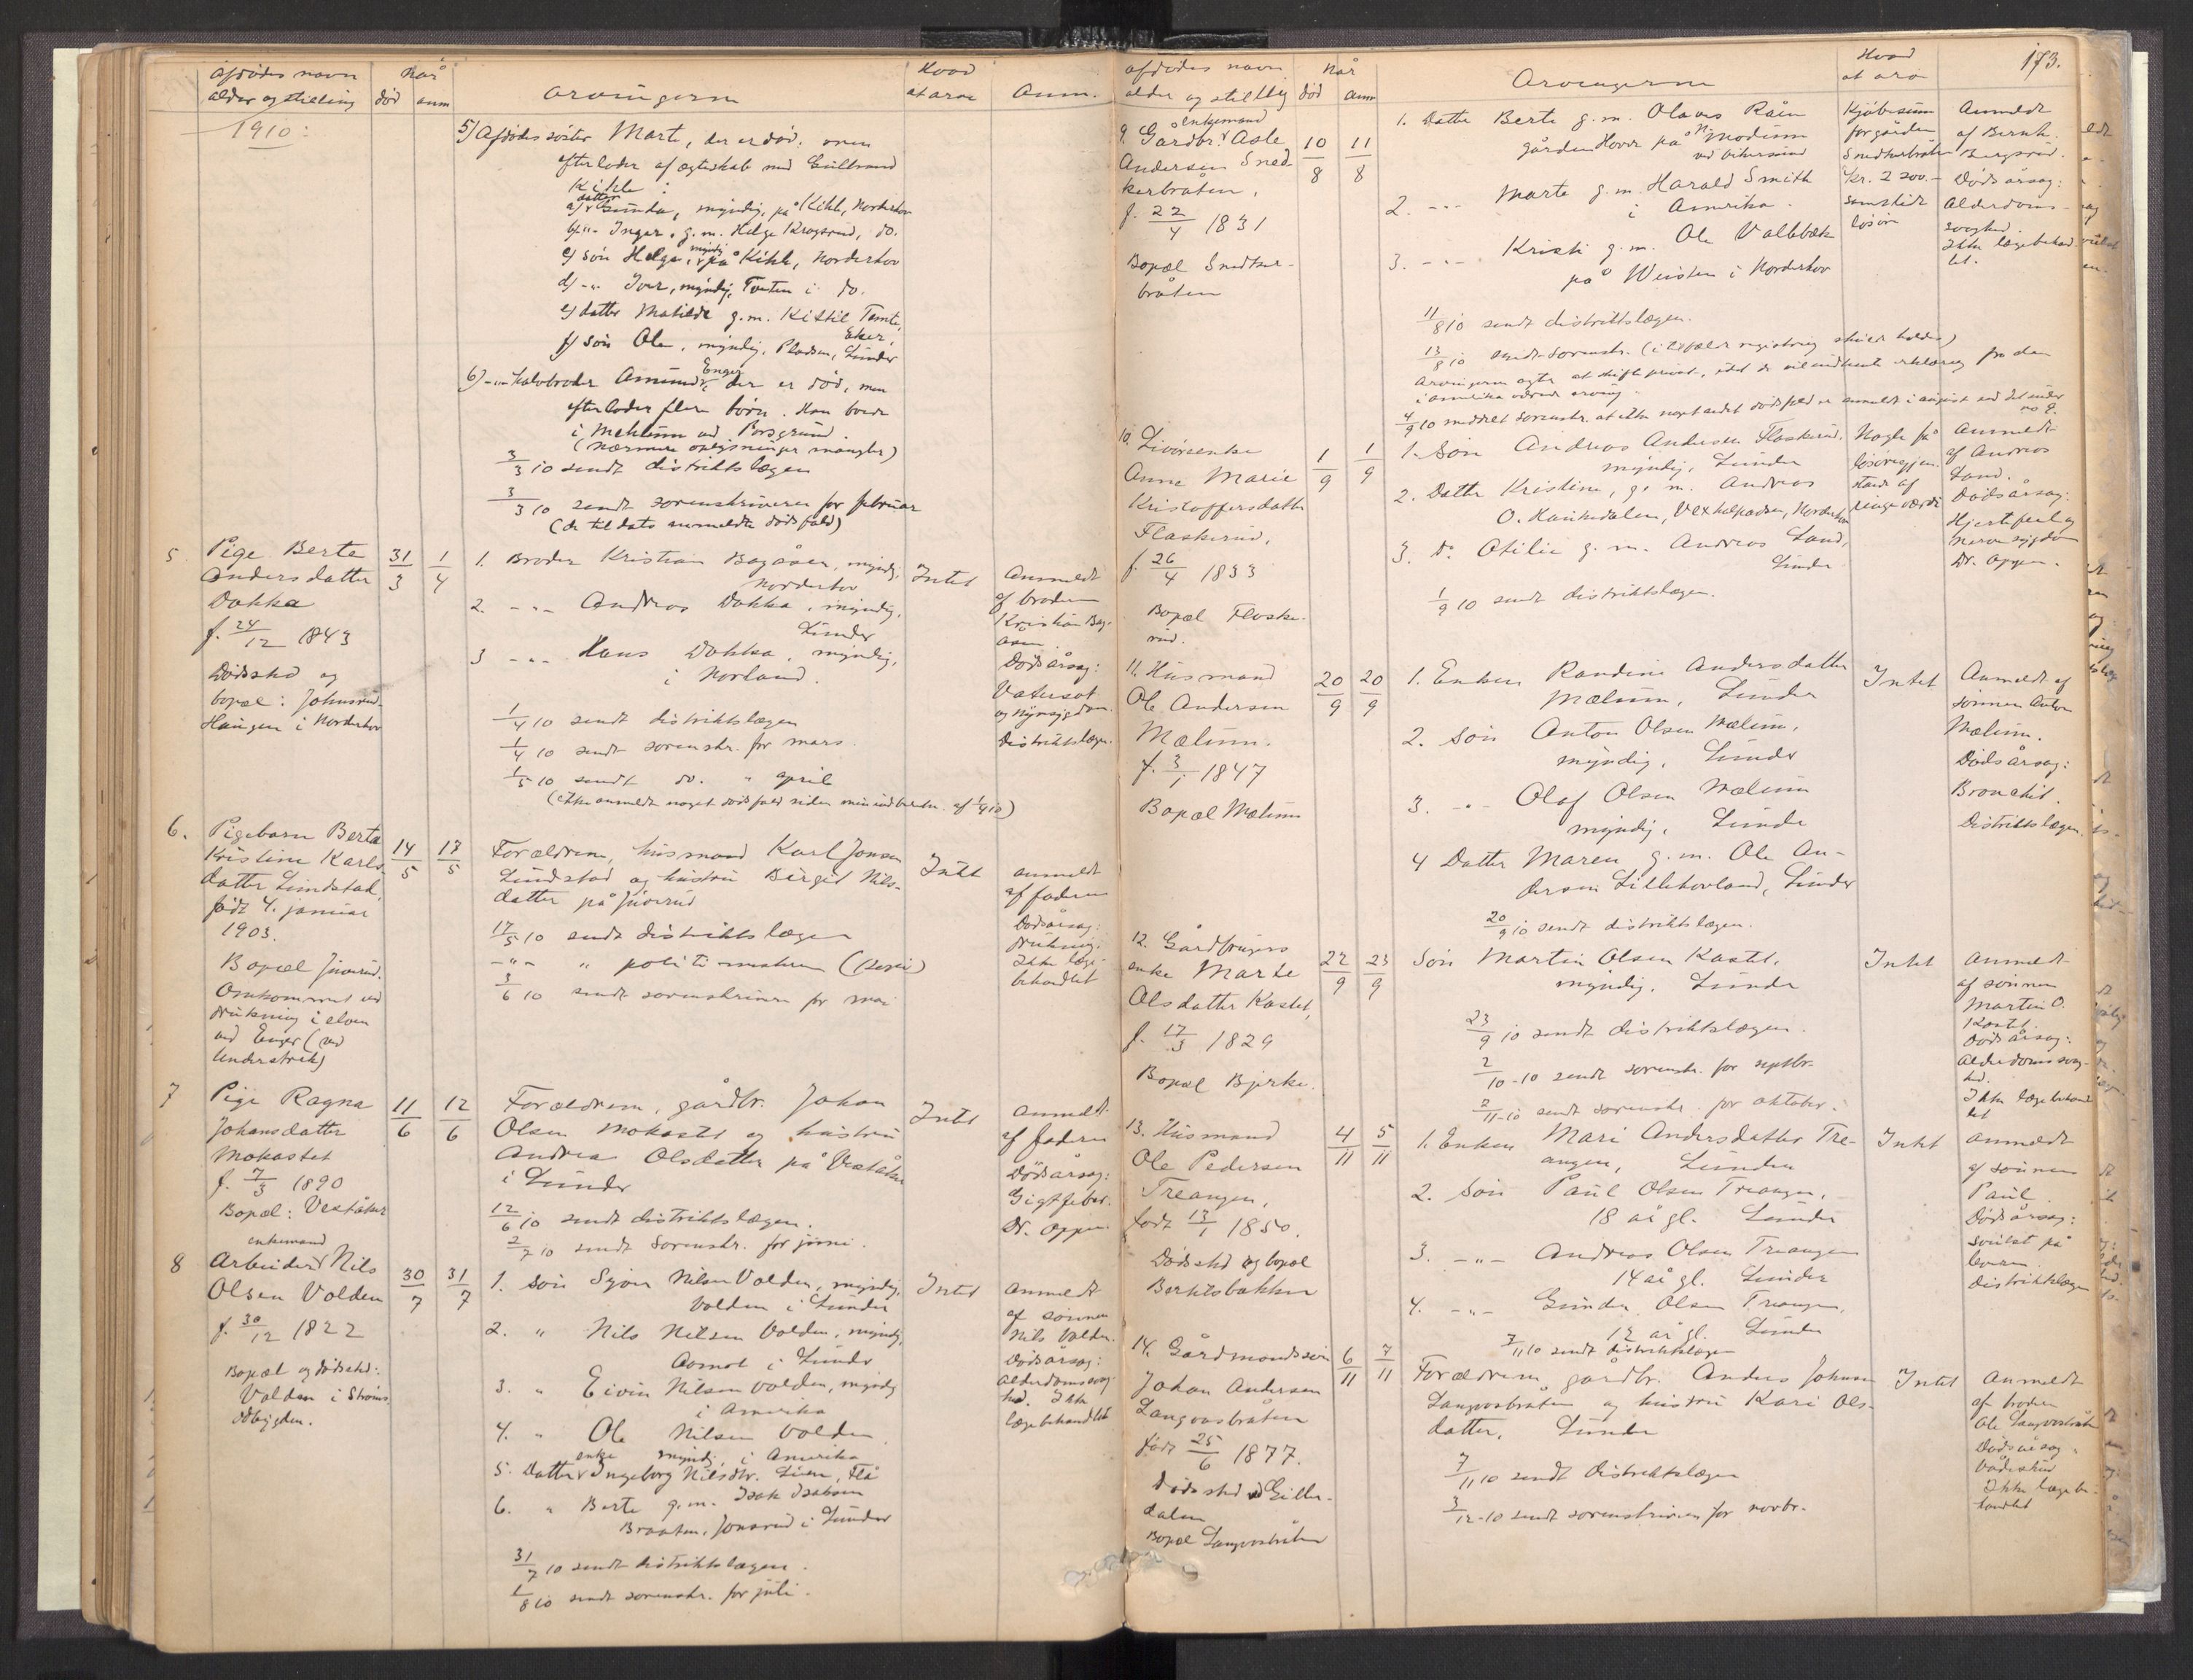 Afdødes navn
alder og stilling
når
død
anm
Arvingerne
Hvad
at arve
Anm.
1910:
5) Afdødes søster Marte, der er død, men
efterlader af ægteskab med Gulbrand
Kihle:
a) datter Gunda, myndig, på Kihle, Norderhov
b) -"- Inger, g.m. Helge Krogsrud, do.
c) søn Helge, myndig, på Kihle, Norderhov
d) -"- Iver, myndig, i do.
e) datter Matilde g.m. Kittil Tomte,
Eker,
f) søn Ole, myndig, Pladsen, Lunder
6) -"- Halvbroder Amund Enger, der er død, men
efterlader flere børn. Han boede
i ved Porsgrund.
(Nærmere oplysninger mangler)
3/3 10 sendt distriktslægen
3/3 10 sendt sorenskriveren for februar
(de til dato anmeldte dødsfald)
5 Pige Berte
Andersdatter
Dokka
f. 24/12 1843
Dødssted og
bopæl: Johnsrud-
Haugen i Norderhov
31/3
1/4
1. Broder Kristian Bagåsen, myndig,
Norderhov
2. -"- Andreas Dokka, myndig,
Lunder
3 -"- Hans Dokka, myndig,
i Norland.
Intet
Anmeldt
af broderen
Kristian Bag-
åsen
Dødsårsag:
Vatersot
og nyresygdom.
Distriktslægen.
1/4 10 sendt distriktslægen
1/4 10 sendt sorenskr. for mars.
1/5 10 sendt do. " april
(ikke anmeldt noget dødsfald siden min indberetn. af 1/4 10)
6. Pigebarn Berta
Kristine Karls-
datter Lundstad,
født 4. januar
1903.
Bopæl Juverud.
Omkommet ved
drukning i elven
ved Enger (ved
Understrek)
14/5
17/5
Forældrene, husmand Karl Jonsen
Lundstad og hustru Birgit Nils-
datter på Juverud
Intet
anmeldt
af faderen
Dødsårsag:
drukning.
Ikke læge-
behandlet
17/5 10 sendt distriktslægen
-"- " politimesteren
3/6 10 sendt sorenskriveren for mai
7 Pige Ragna
Johansdatter
Mokastet
f. 7/3 1890
Bopæl: Vestaker
11/6
12/6
Forældrene, gårdbr. Johan
Olsen Mokastet og hustru
Andrea Olsdatter på Vestaker
i Lunder
Intet
anmeldt
af faderen
Dødsårsag:
Gigtfeber.
Dr. Oppen.
12/6 10 sendt distriktslægen.
2/7 10 sendt Sorenskr. for juni.
enkemand
8 Arbeider Nils
Olsen Volden
f. 30/12 1822
Bopæl og dødssted:
Volden i Strøms-
oddbygden.
30/7
31/7
1. søn Nilsen Volden, myndig,
Volden i Lunder
2. " Nils Nilsen Volden, myndig,
i Lunder
3. " Eivin Nilsen Volden, myndig
i Amerika
4. " Ole Nilsen Volden
myndig, i Amerika
5. Datter enke Ingeborg Nilsdtr. Lien, Flå
6. " Berte g.m. Isak Isaksen
Braaten, Jonsrud i Lunder
Intet
Anmeldt
af sønnen
Nils Volden.
Dødsårsag:
alderdomssvag-
hed. Ikke
lægebehandlet
31/7 10 sendt distriktslægen.
1/8 10 sendt sorenskr. for juli.
173.
Afdødes navn
alder og stilling
når
død
anm
Arvingerne
Hvad
at arve
enkemand
9. Gårdbr. Asle
Andersen Sned-
kerbråten,
f. 22/4 1831
Bopæl Snedker-
bråten
10/8
11/8
1. Datter Berte g.m. Olaus Råen
gården Hovde på N. Modum
ved Vikersund
2. -"- Marte g.m. Harald Smith
i Amerika.
3. -"- Kristi g.m. Ole Vallebæk
på Weisten i Norderhov
Kjøbesum
for gården
Snedkerbråten
kr. 2 200.-
samt lidt
løsøre
Anmeldt
af Bernh.
Bergsrud.
Dødsårsag:
Alderdoms-
svaghed.
Ikke lægebehand-
let.
11/8 10 sendt distriktslægen.
13/8 10 sendt sorenskr. (i tilfælde registrering skulde holdes)
Arvingerne agter at skifte privat, idet de vil indhente erklæring fra den
i Amerika værende arving.
4/9 10 meddelt sorenskr. at ikke noget andet dødsfald er anmeldt i august end det under
no 9.
10. Livøreenke
Anne Marie
Kristoffersdatter
Flaskerud,
f. 26/4 1833
Bopæl Flaske-
rud.
1/9
1/9
1. Søn Andreas Andersen Flaskerud,
myndig, Lunder
2. Datter Kristine, g.m. Andreas
O. Hankedalen, Norderhov
3. Do Otilie g.m. Andreas Land,
Lunder
Nogle få
løsøregjen-
stande af
ringe værdi
Anmeldt
af Andreas
Land.
Dødsårsag:
Hjertefeil og
nervesygdom
Dr. Oppen.
1/9 10 sendt distriktslægen.
11. Husmand
Ole Andersen
Mælum.
f. 3/1 1847
Bopæl Mælum
20/9
20/9
1. Enken Randine Andersdatter
Mælum, Lunder
2. Søn Anton Olsen Mælum,
myndig, Lunder
3. -"- Olaf Olsen Mælum
myndig, Lunder
4 Datter Maren g.m. Ole An-
dersen Lillehovland, Lunder
Intet
Anmeldt af
sønnen Anton
Mælum.
Dødsårsag:
Bronchit.
Distriktslægen.
20/9 10 sendt distriktslægen.
12. Gårdbrugers
enke Marte
Olsdatter Kastet,
f. 17/3 1829
Bopæl Bjerke.
22/9
23/9
Søn Martin Olsen Kastet,
myndig, Lunder
Intet
Anmeldt
af sønnen
Martin O.
Kastet.
Dødsårsag:
Alderdomssvag-
hed.
Ikke lægebehand-
let
23/9 10 sendt distriktslægen.
2/10-10 sendt sorenskr. for septbr.
2/11-10 sendt sorenskr. for oktober.
13. Husmand
Ole Pedersen
Treangen,
født 13/1 1850.
Dødssted og bopæl
Bertilsbakken
4/11
5/11
1. Enken Mari Andersdatter Tre-
angen, Lunder
2. Søn Paul Olsen Treangen,
18 år gl. Lunder
3. -"- Andreas Olsen Treangen
14 år gl. Lunder
4. -"- Gunder Olsen Treangen,
12 år gl. Lunder
Intet
anmeldt
af sønnen
Paul.
Dødsårsag:
svulst på
leveren
distriktslægen
7/11 10 sendt distriktslægen
14. Gårdmandssøn
Johan Andersen
Langvasbråten
født 25/6 1877.
Dødssted
dalen
Bopæl Langvasbråten
6/11
7/11
Forældrene, gårdbr. Anders Johnsen
Langvasbråten og hustru Kari Ols-
datter, Lunder
Intet
Anmeldt
af broderen
Ole Langvasbråten
Dødsårsag:
Vådeskud
Ikke lægebe-
handlet
7/11 10 sendt distriktslægen
3/12-10 sendt sorenskriveren for novbr.